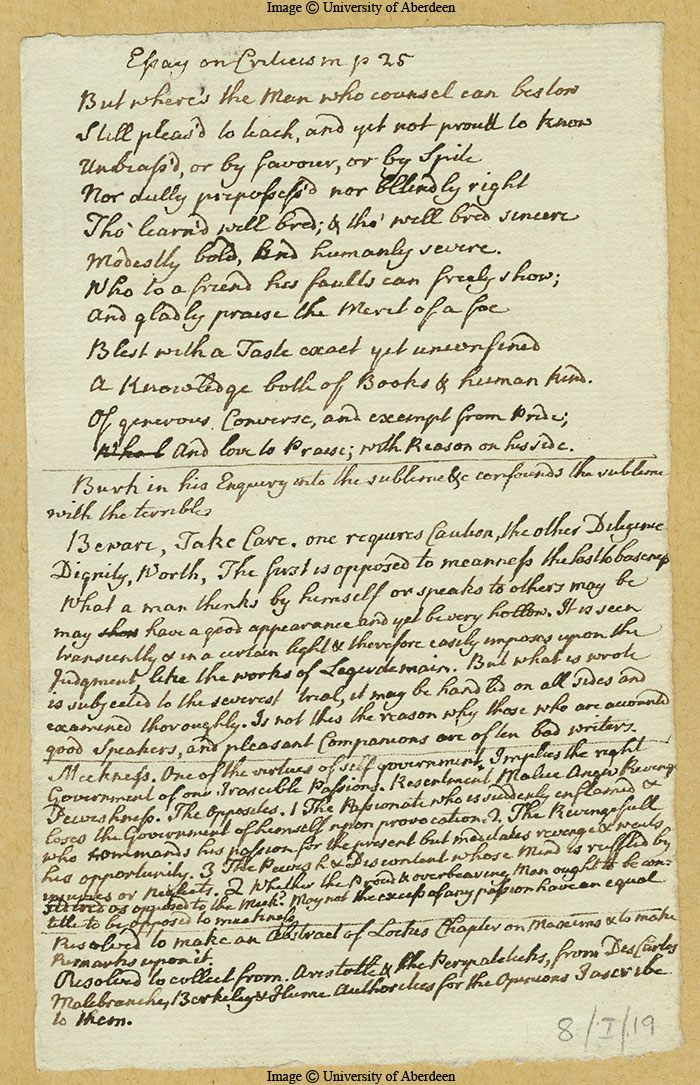 Image © University of Aberdeen
Essay on Criticism p 25
But where's the Man who counsel can bestow
Still pleas'd to teach, and yet not proud to know
Unbiass'd, or by favour, or by Spite
Nor dully prepossess'd nor blindly right
Tho' learn'd well bred; & tho' well bred sincere
Modestly bold, and humanly severe.
Who to a friend his faults can freely show;
And gladly praise the Merit of a foe
Blest with a Taste exact yet unconfined
A Knowledge both of Books & human kind.
Of generous Converse, and exempt from Pride;
And love to Praise; with Reason on his side.
Burk in his Enquiry into the sublime &c confounds the sublime
with the terrible
Beware, Take Care. one requires Caution, the other Diligence
Dignity, Worth, The first is opposed to meanness the last to baseness
What a man thinks by himself or speaks to others may be
may have a good appearance and yet be very hollow. It is seen
transiently & in a certain light & therefore easily imposes upon the
Judgment, like the works of Legerdemain. But what is wrote
is subjected to the severest trial, it may be handled on all sides and
examined thoroughly. Is not this the reason why those who are accounted
good Speakers, and pleasant Companions are often bad writers.
Meekness. One of the virtues of self government. Implies the right
Government of our Irascible Passions. Resentment Malice Anger Revenge
Peevishness. The Opposites. 1 The Passionate who is suddenly enflamed &
loses the Government of himself upon provocation. 2. The Revengefull
who commands his passion for the present but meditates revenge & waits
his opportunity. 3 The Peevish & Discontent whose Mind is ruffled by
injuries or neglects. Q Whether the Proud & overbearing Man ought to be con-
sidered as opposed to the Meek. May not the excess of any passion have an equal
title to be opposed to meekness
Resolved to make an Abstract of Lockes Chapter on Maxims & to make
Remarks upon it.
Resolved to collect from Aristotle & the Peripateticks, from Des Cartes
Malebranche, Berkeley & Hume Authorities for the Opinions I ascribe
to them.
8/I/19
Image © University of Aberdeen